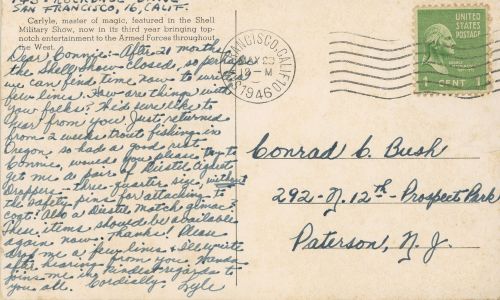 SAN FRANCISCO, 16, CALIF.
Carlyle, master of magic, featured in the Shell
Military Show, now in its third year bringing top-
notch entertainment to the Armed Forces throughout
the West.
Dear Connie:- After 21 months
the Shell Show closed, so perhaps
we can find time now to write a
few lines. How are things with
you folks? I'd sure like to
hear from you. Just returned
from 2 weeks trout fishing in
Oregon so had a good rest.
Connie, would you please try to
get me a pair of Diestel Cigaret
Droppers - three-quarter size, without
the safety pins for attaching to
coat? Also a Diestel Match gimac?
These items should be available
again now. Thanks! Please
drop me a few lines & I'll write
after hearing from you. Wanda
joins me in kindest regards to
you all. Cordially, Lyle
SAN FRANCISCO, CALIF. 10
MAY 23
12 - M
1946
UNITED STATES
POSTAGE
1 CENT 1
Conrad C. Bush
292-N. 12th - Prospect Park
Paterson, N. J.